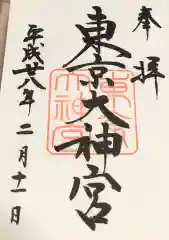 奉拝
東京大神宮
平成廿八年二月十一日
東京大神宮